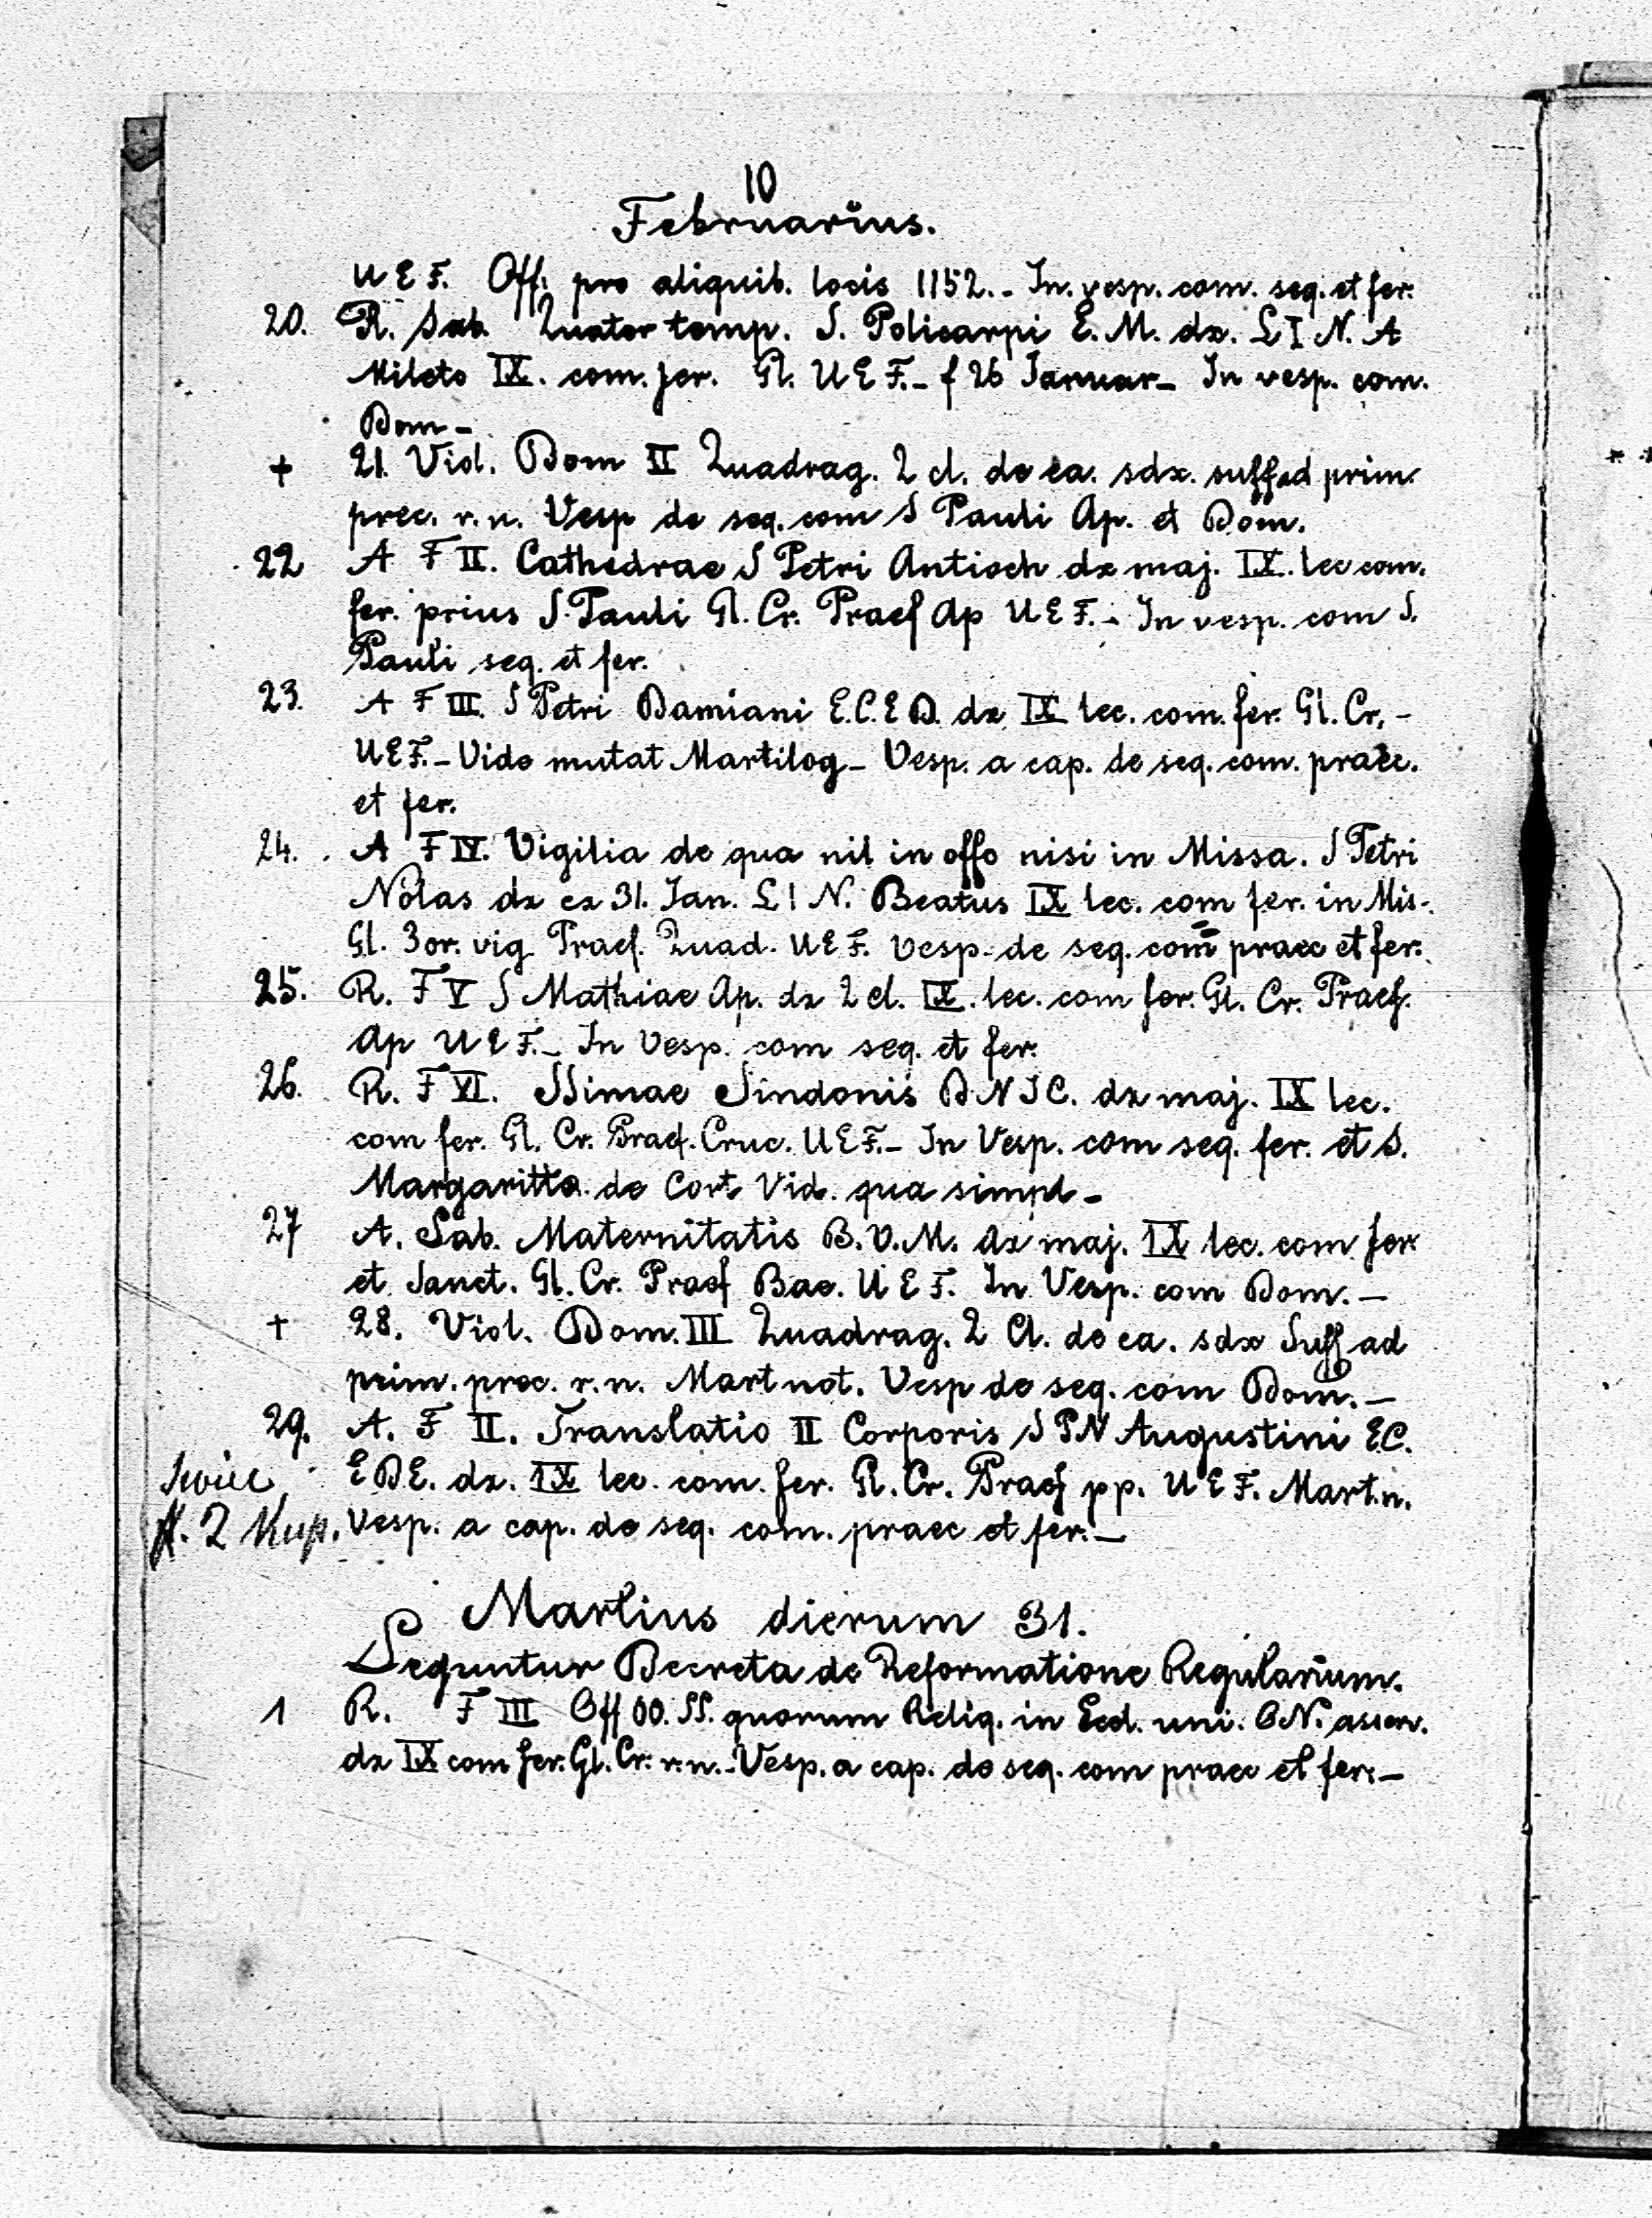 10
Februarius.
U E F. Off. pro aliquib. locis 1152. - In. vesp. com. seq. et fer.
20. R. Sab. Quator temp. S. Policarpi E. M. dx. L I N. A
Mileto IX. com. fer. Gl. U E F. - f 26 Januar - In vesp. com.
Dom -
+ 21. Viol. Dom II Quadrag. 2 cl. de ea. sdx. suff ad prim.
prec. r. n. Vesp de seq. com S Pauli Ap. et Dom.
22 A F II. Cathedrae S Petri Antioch dx maj. IX. lec com.
fer. prius S. Pauli Gl. Cr. Praef Ap U E F. - In vesp. com S.
Pauli seq. et fer.
23. A F III. S Petri Damiani E. C. E D. dx IX lec. com. fer. Gl. Cr. -
U E F. - Vide mutat Martilog - Vesp. a cap. de seq. com. praec.
et fer.
24. A F IV. Vigilia de qua nil in offo nisi in Missa. S Petri
Nolas dx ex 31. Jan. L I N. Beatus IX lec. com fer. in Mis.
Gl. 3 or. vig. Praef. Quad. U E F. Vesp. de seq. com praec et fer.
25. R. F V S Mathiae Ap. dx 2 cl. IX. lec. com fer. Gl. Cr. Praef.
Ap U E F. - In Vesp. com seq. et fer.
26. R. F VI. SSimae Sindonis D N J C. dx maj. IX lec.
com fer. Gl. Cr. Praef. Cruc. U E F. - In Vesp. com seq. fer. et S.
Margaritta de Cort Vid. qua simpl -
27 A. Sab. Maternitatis B. V. M. dx maj. IX lec. com fer
et Sanct. Gl. Cr. Praef Bae. U E F. In Vesp. com Dom. -
+ 28. Viol. Dom. III Quadrag. 2 Cl. de ea. sdx Suff ad
prim. prec. r. n. Mart not. Vesp de seq. com Dom. -
29. A. F II. Translatio II Corporis S P N Augustini E. C.
E D E. dx. IX lec. com. fer. Gl. Cr. Praef pp. U E F. Mart. n.
2 Vesp. a cap. de seq. com. praec et fer. -
Martius dierum 31.
Sequntur Decreta de Reformatione Regularium.
1 R. F III Off OO. SS. quorum Reliq. in Eccl. uni. O N. asser.
dx IX com fer. Gl. Cr. r. n. - Vesp. a cap. de seq. com praec et fer. -